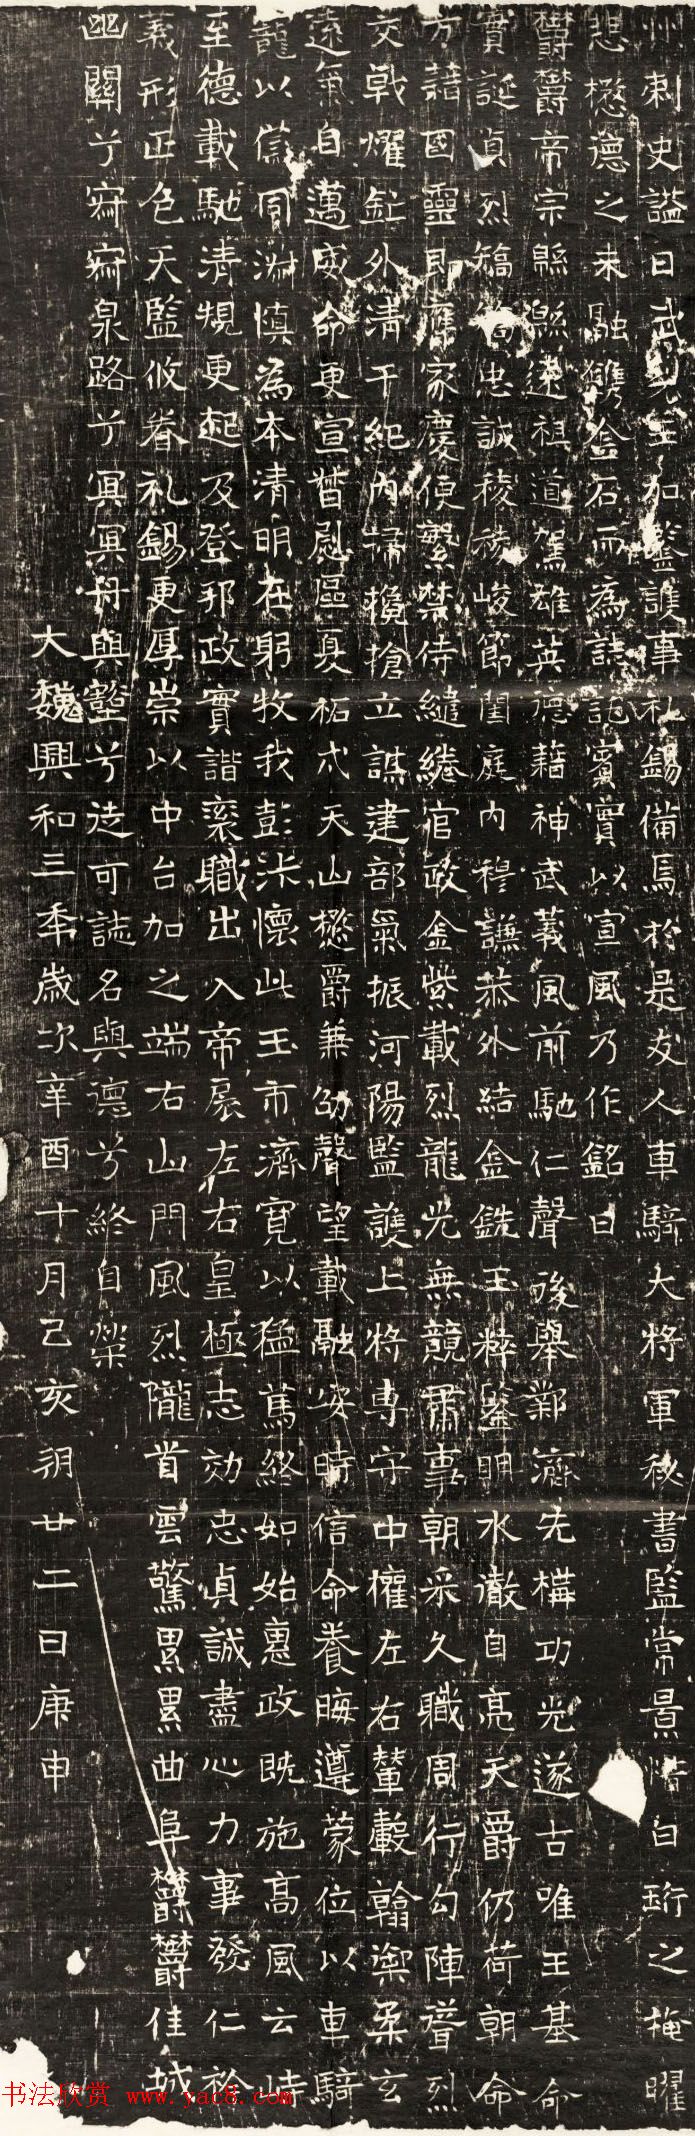 州刺史謚曰武昭王加鉴護事礼錫備焉於是友人車騎大將軍秘書監常景惜白珩之掩曜
悲懋德之未融鐫金石而為誌託賓實以宣風乃作銘曰
欝欝帝宗緜緜遠祖道駕雄英德藉神武義風前馳仁聲後舉鄴濟先構功光遂古唯王基命
實誕貞烈矯矯忠誠稜稜峻節閨庭內穆謙恭外結金銑玉粹鑒明水澈自亮天爵仍荷朝命
方藉國靈即應家慶便繁禁侍繾綣官政金紫載烈龍光無競肅事朝采久職周行勾陣聳烈
交戟燿釭外清干紀內掃欃搶立謀建部氣振河陽監護上將專守中權左右輦轂翰禦柔玄
遠氣自邁威命更宣晉慰區夏柘弋天山懋爵兼劭聲望載融安時信命養晦遵蒙位以車騎
龍以儐同淋慎為本清明在躬牧我彭沭懷此王市濟寬以猛篤終如始惠政既施高風云峙
至德載馳清規更起及登邦政實諧袞職出入帝扆左右皇極志効忠貞誠盡心力事發仁於
義形正色天監攸眷礼錫更厚崇以中台加之端右山門風烈隴首雲驚累累曲阜欝欝佳城
幽關兮寂寂泉路兮冥冥舟與壑兮徒可誌名與德兮終自榮
大魏興和三年歲次辛酉十月己亥朔廿二日庚申
书法欣赏 www.yac8.com